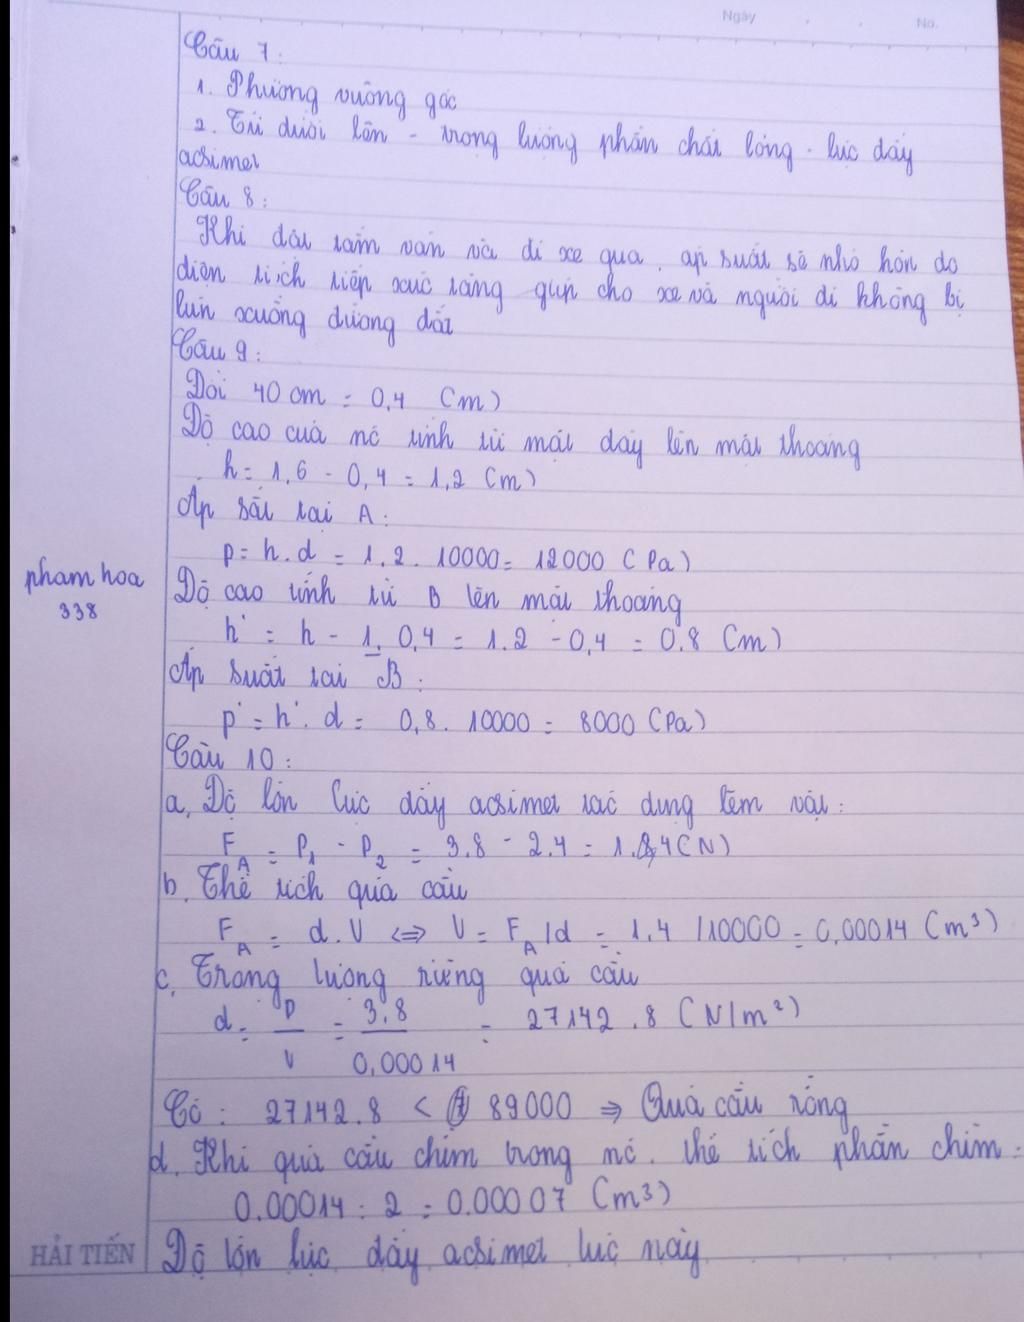 Ngày . . No.
Câu 7:
1. Phương vuông góc
2. Từ dưới lên - trọng lượng phần chất lỏng - lực đẩy
acsimet
Câu 8:
Khi đặt tấm ván và đi xe qua, áp suất sẽ nhỏ hơn do
diện tích tiếp xúc tăng giúp cho xe và người đi không bị
lún xuống đường đất
Câu 9:
Đổi 40 cm = 0,4 (m)
Độ cao của nc tính từ mặt đáy lên mặt thoáng
h = 1,6 - 0,4 = 1,2 (m)
Áp sất tại A:
p = h.d = 1,2. 10000 = 12000 (Pa)
Độ cao tính từ B lên mặt thoáng
h' = h - 1. 0,4 = 1.2 - 0,4 = 0.8 (m)
Áp suất tại B:
p' = h'. d = 0,8. 10000 = 8000 (Pa)
Câu 10:
a, Độ lớn lực đẩy acsimet tác dụng lêm vật:
F_A = P_1 - P_2 = 3.8 - 2.4 = 1.4 (N)
b, Thể tích quả cầu
F_A = d.V <=> V = F_A/d = 1,4 /10000 = 0,00014 (m³)
c, Trọng lượng riêng quả cầu
d = P/V = 3,8/0,00014 = 27142.8 (N/m²)
Có: 27142.8 < 89000 => Quả cầu rỗng
d. Khi quả cầu chìm trong nc. thể tích phần chìm:
0.00014 : 2 = 0.00007 (m3)
Độ lớn lực đẩy acsimet lúc này
pham hoa
338
HẢI TIẾN